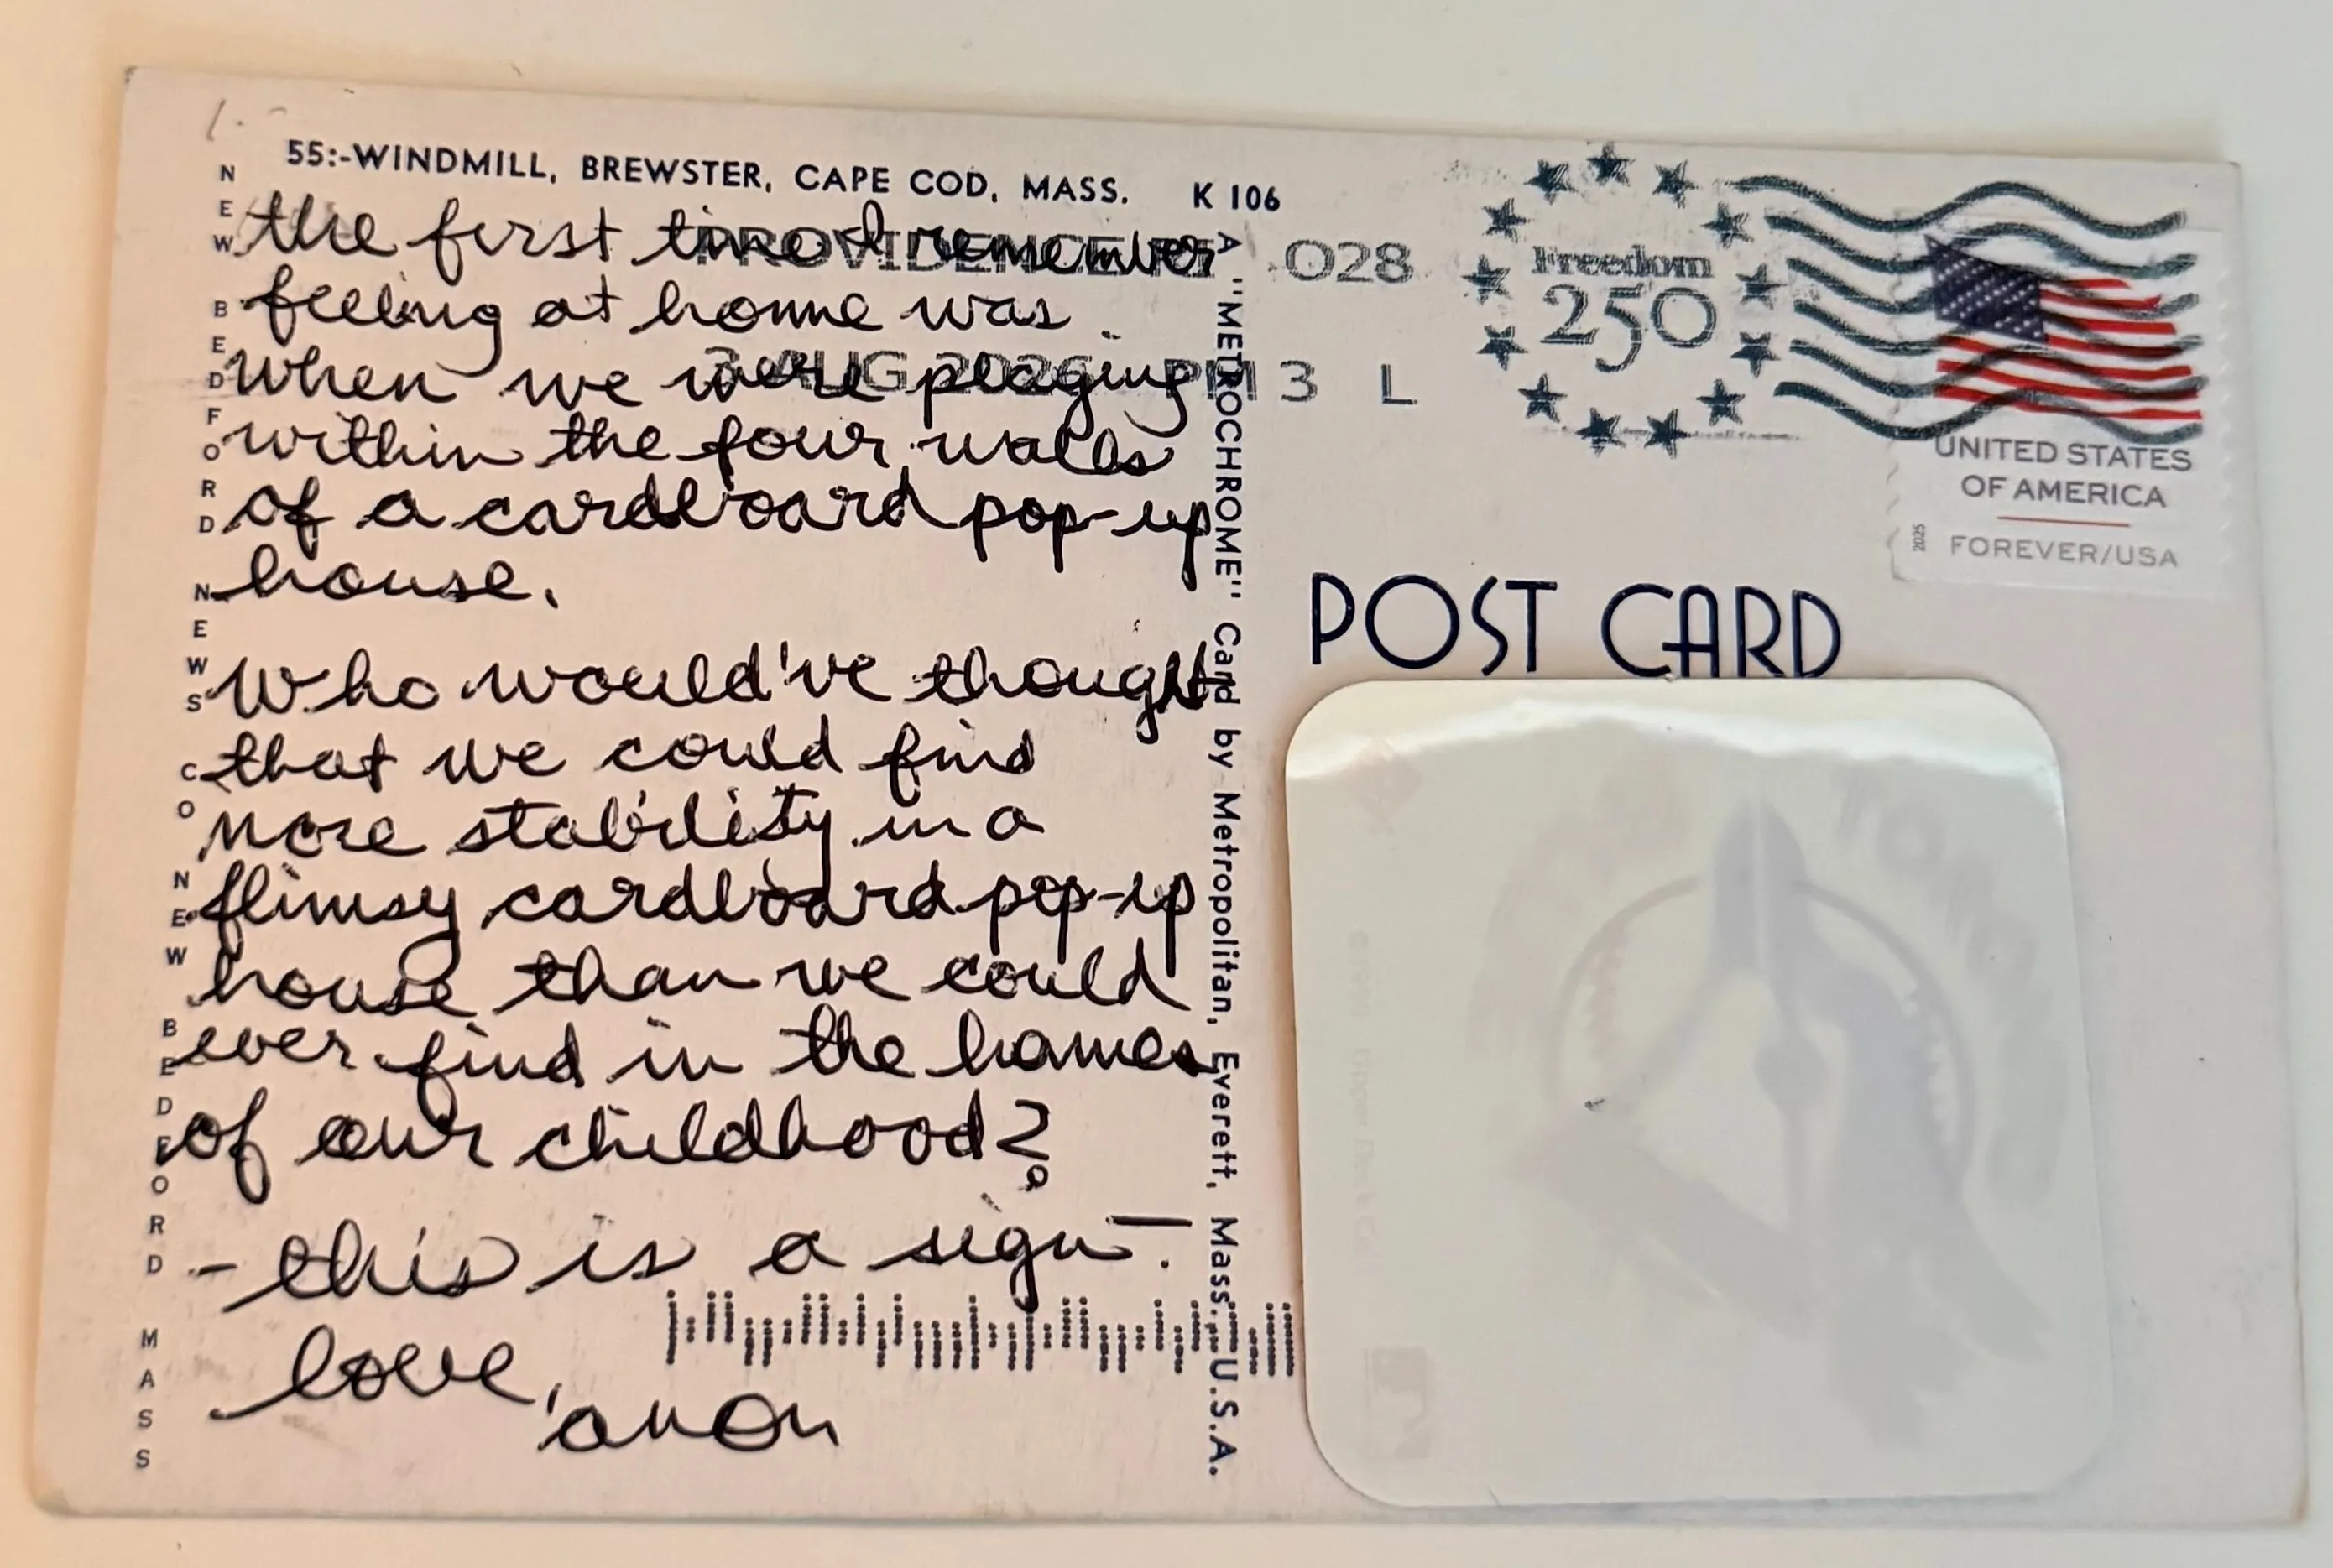 55:-WINDMILL, BREWSTER, CAPE COD, MASS. K 106
NEW BEDFORD NEWS CO NEW BEDFORD MASS
the first time I remember
feeling at home was
when we were playing
within the four walls
of a cardboard pop-up
house.
Who would've thought
that we could find
more stability in a
flimsy cardboard pop-up
house than we could
ever find in the homes
of our childhood?
- this is a sign -.
love,
anon
A "METROCHROME" Card by Metropolitan, Everett, Mass., U.S.A.
PROVIDENCE RI 028
3 AUG 2026 PM 3 L
Freedom
250
UNITED STATES
OF AMERICA
FOREVER/USA
2025
POST CARD